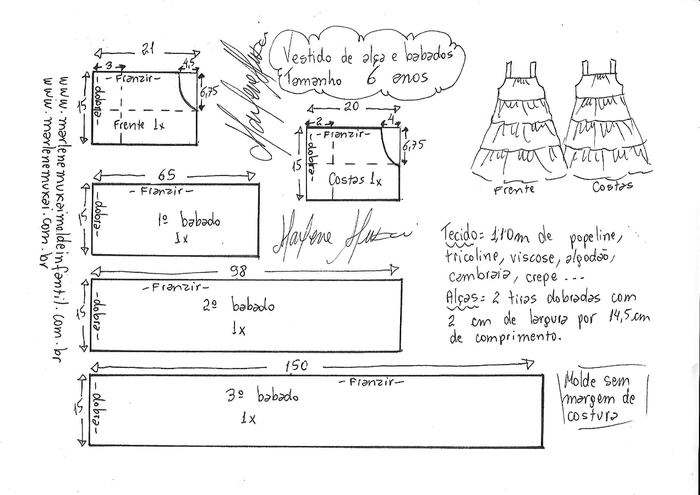 Vestido de alça e babados
Tamanho 6 anos
21
3
4,5
- Franzir -
- dobra -
15
6,75
Frente 1x
20
2
4
- Franzir -
dobra -
15
6,75
Costas 1x
Frente
Costas
65
- Franzir -
- dobra -
15
1º babado
1x
Marlene Mukai
Marlene Mukai
98
- Franzir -
- dobra -
15
2º babado
1x
150
- Franzir -
- dobra -
15
3º babado
1x
Tecido = 1,10m de popeline,
tricoline, viscose, algodão,
cambraia, crepe ...
Alças = 2 tiras dobradas com
2 cm de largura por 14,5 cm
de comprimento.
Molde sem
margem de
costura
www.marlenemukaimoldeinfantil.com.br
www.marlenemukai.com.br